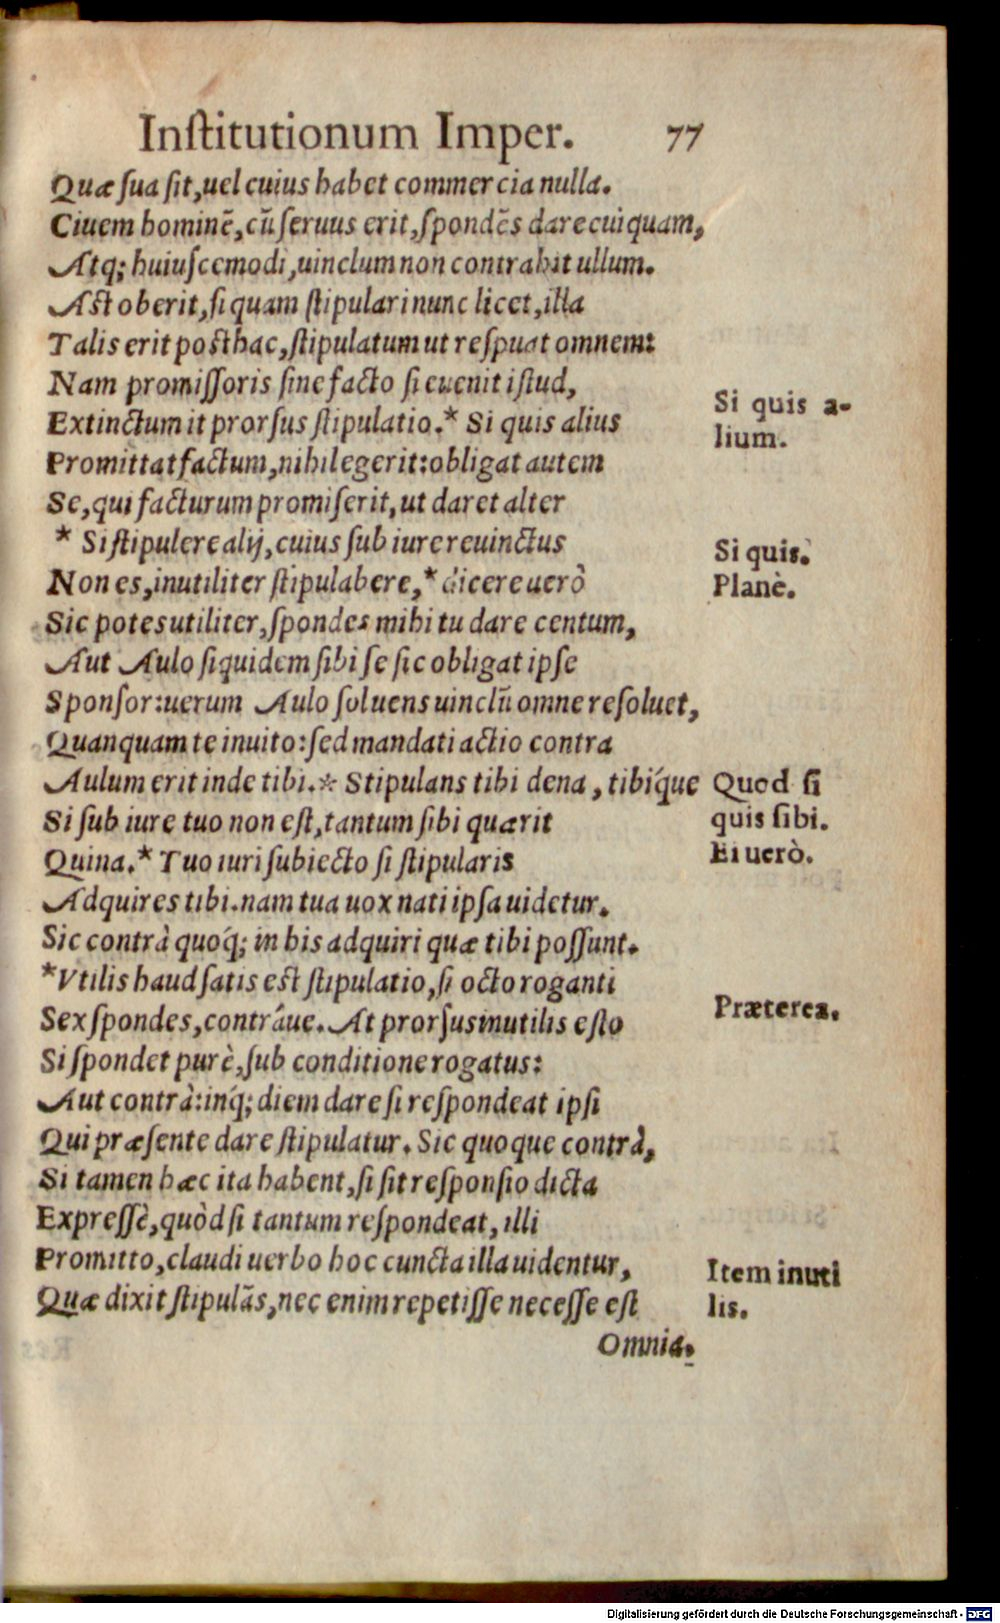 Inſtitutionum Imper. 77
Quæ ſua ſit, uel cuius habet commercia nulla.
Ciuem hominē, cū ſeruus erit, ſpondēs dare cuiquam,
Atq; huiuſcemodi, uinclum non contrahit ullum.
Aſt oberit, ſi quam ſtipulari nunc licet, illa
Talis erit poſthac, ſtipulatum ut reſpuat omnem:
Nam promiſſoris ſine facto ſi euenit iſtud,
Extinctum it prorſus ſtipulatio.* Si quis alius
Si quis a-
lium.
Promittat factum, nihil egerit: obligat autem
Se, qui facturum promiſerit, ut daret alter
* Si ſtipulere alij, cuius ſub iure reuinctus
Si quis.
Non es, inutiliter ſtipulabere,* dicere uerò
Planè.
Sic potes utiliter, ſpondes mihi tu dare centum,
Aut Aulo ſiquidem ſibi ſe ſic obligat ipſe
Sponſor: uerum Aulo ſoluens uinclū omne reſoluet,
Quanquam te inuito: ſed mandati actio contra
Aulum erit inde tibi.* Stipulans tibi dena, tibíque
Quod ſi
Si ſub iure tuo non eſt, tantum ſibi quærit
quis ſibi.
Quina.* Tuo iuri ſubiecto ſi ſtipularis
Ei uerò.
Adquires tibi. nam tua uox nati ipſa uidetur.
Sic contrà quoq́; in his adquiri quæ tibi poſſunt.
*Vtilis haud ſatis eſt ſtipulatio, ſi octo roganti
Præterea.
Sex ſpondes, contráue. At prorſus inutilis eſto
Si ſpondet purè, ſub conditione rogatus:
Aut contrà: inq́; diem dare ſi reſpondeat ipſi
Qui præſente dare ſtipulatur. Sic quoque contrà,
Si tamen hæc ita habent, ſi ſit reſponſio dicta
Expreſſè, quòd ſi tantum reſpondeat, illi
Promitto, claudi uerbo hoc cuncta illa uidentur,
Item inuti
Quæ dixit ſtipulãs, nec enim repetiſſe neceſſe eſt
lis.
Omnia.
Digitalisierung gefördert durch die Deutsche Forschungsgemeinschaft - DFG